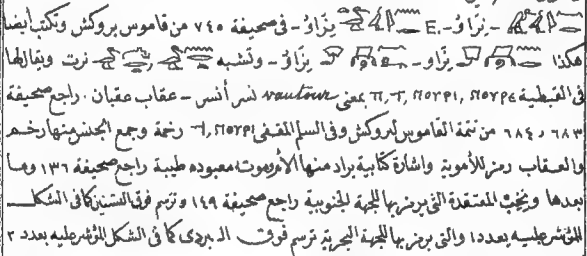 - نِرَاوُ - E. نِرَاوُ - فى صحيفة ٧٤٥ من قاموس بروكش وتكتب أيضا
هكذا نِرَاو - نِرَاوُ - وتشبه نرت ويقابلها
فى القبطية ⲛⲟⲩⲣⲉ, ⲛⲟⲩⲣⲓ, ⲧ, ⲡ بمعنى vautour نسر أنسر - عقاب عقبان . راجع صحيفة
٦٨٣ و ٦٨٤ من تتمة القاموس لبروكش وفى السلم المقفى ⲛⲟⲩⲣⲓ, ⲧ رخمة وجمع الجنس منها رخم
والعقاب رمز للأموية واشارة كتابية يراد منها الأم وموت معبوده طيبة راجع صحيفة ١٣٦ وما
بعدها و المعتقدة التى يرمز بها للجهة الجنوبية راجع صحيفة ١٤٩ وترسم فوق كما فى الشكل
المؤشر عليه بعدد ١ والتى يرمز بها للجهة البحرية ترسم فوق البردى كما فى الشكل المؤشر عليه بعدد ٢